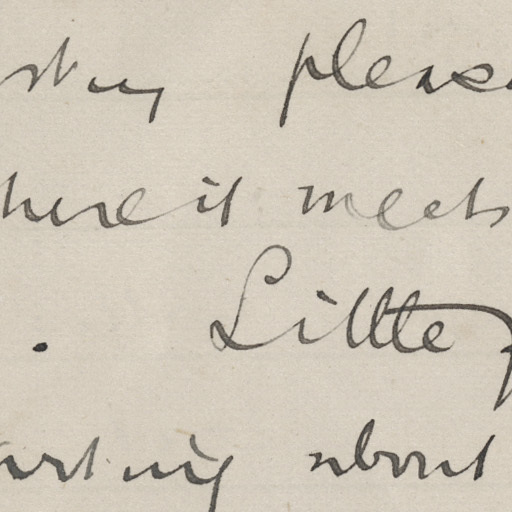 pleas
here it meets
. Little
arting about